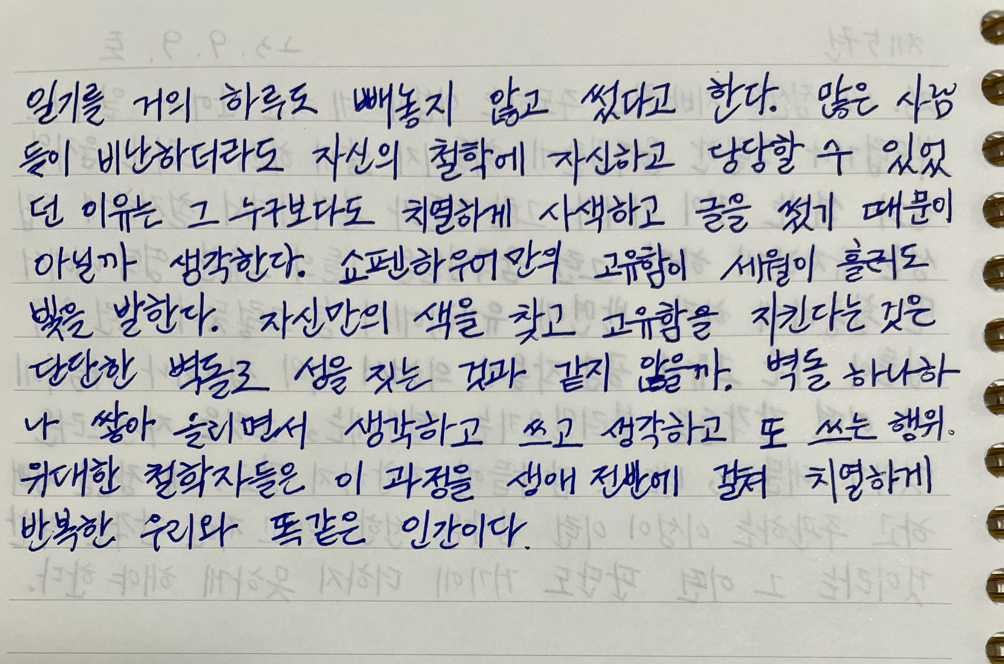 일기를 거의 하루도 빼놓지 않고 썼다고 한다. 많은 사람
들이 비난하더라도 자신의 철학에 자신하고 당당할 수 있었
던 이유는 그 누구보다도 치열하게 사색하고 글을 썼기 때문이
아닐까 생각한다. 쇼펜하우어만의 고유함이 세월이 흘러도
빛을 발한다. 자신만의 색을 찾고 고유함을 지킨다는 것은
단단한 벽돌로 성을 짓는 것과 같지 않을까. 벽돌 하나하
나 쌓아 올리면서 생각하고 쓰고 생각하고 또 쓰는 행위.
위대한 철학자들은 이 과정을 생애 전반에 걸쳐 치열하게
반복한 우리와 똑같은 인간이다.